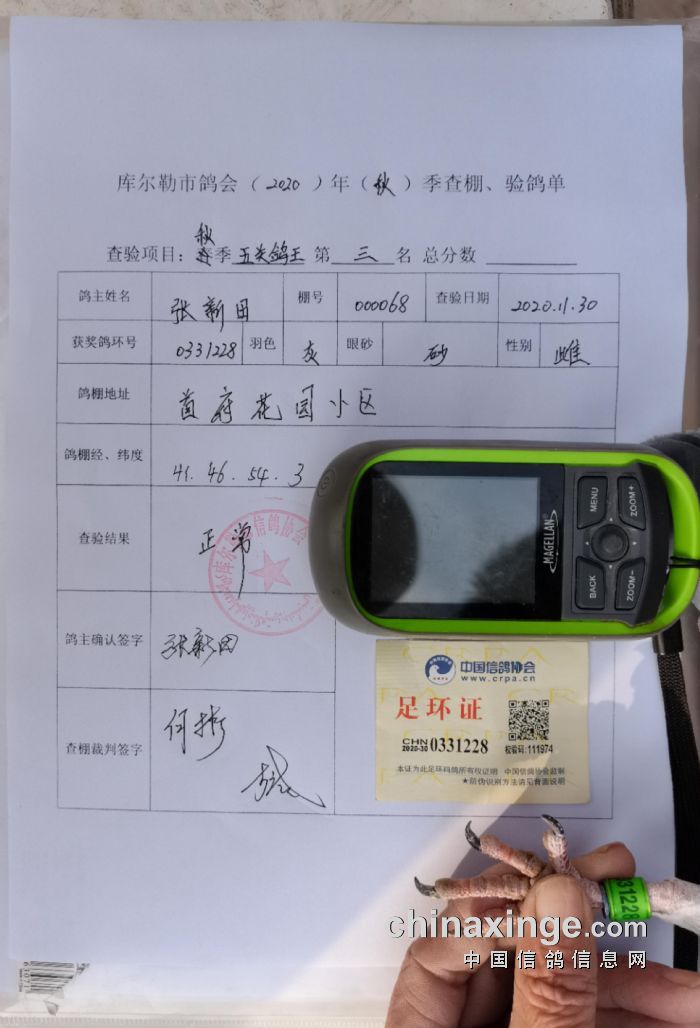 库尔勒市鸽会（2020）年（秋）季查棚、验鸽单
秋
查验项目：春季 五关鸽王 第 三 名 总分数
鸽主姓名 张新田 棚号 000068 查验日期 2020.11.30
获奖鸽环号 0331228 羽色 灰 眼砂 砂 性别 雌
鸽棚地址 首府花园小区
鸽棚经、纬度 41.46.54.3
查验结果 正常
信鸽协会
鸽主确认签字 张新田
查棚裁判签字 何彬
MAGELLAN
MENU
ZOOM+
BACK
ZOOM-
中国信鸽协会
www.crpa.cn
足环证
CHN
2020-30 0331228
校验码:111974
本证为此足环码鸽所有权证明 中国信鸽协会监制
★防伪识别方法请见背面说明
31228
chinaxinge.com
中国信鸽信息网